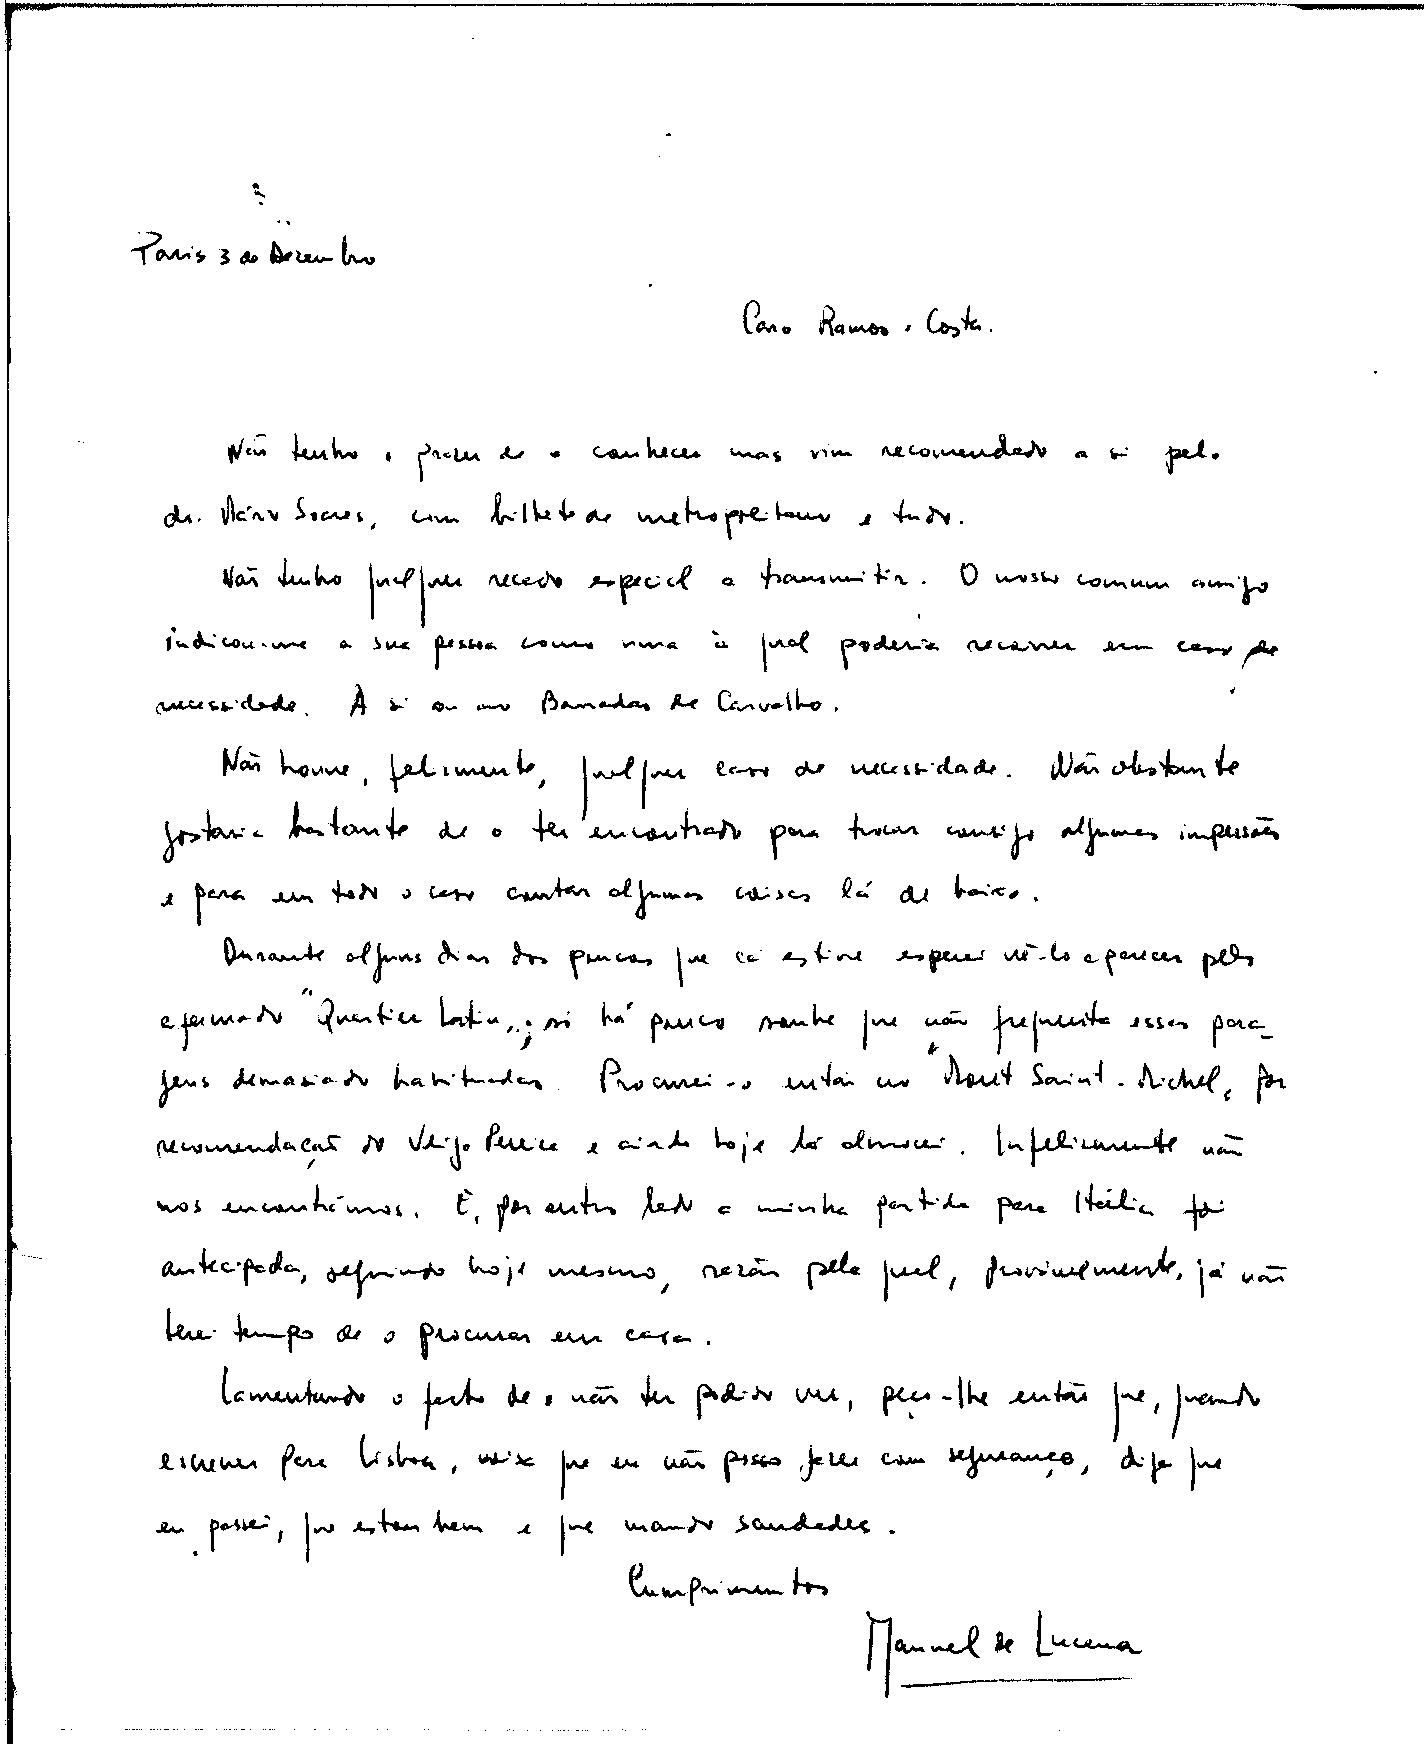 Paris 3 de Dezembro
Caro Ramos e Costa.
Não tenho o prazer de o conhecer mas vim recomendado a si pelo
dr. Mário Soares, com bilhete de metropolitano e tudo.
Não tenho qualquer recado especial a transmitir. O nosso comum amigo
indicou-me a sua pessoa como uma à qual poderia recorrer em caso de
necessidade. A si ou ao Barradas de Carvalho.
Não houve, felizmente, qualquer caso de necessidade. Não obstante
gostaria bastante de o ter encontrado para trocar consigo algumas impressões
e para em todo o caso contar algumas coisas lá de baixo.
Durante alguns dias dos poucos que cá estive esperei vê-lo aparecer pelo
afamado "Quartier Latin"; só há pouco soube que não frequenta essas para-
gens demasiado habituadas. Procurei-o então no "Mont Saint-Michel", por
recomendação do Veiga Pereira e ainda hoje lá almocei. Infelizmente não
nos encontrámos. E, por outro lado a minha partida para Itália foi
antecipada, seguindo hoje mesmo, razão pela qual, provavelmente, já não
terei tempo de o procurar em casa.
Lamentando o facto de o não ter podido ver, peço-lhe então que, quando
escrever para Lisboa, coisa que eu não posso fazer com segurança, diga que
eu passei, que estou bem e que mando saudades.
Cumprimentos
Manuel de Lucena